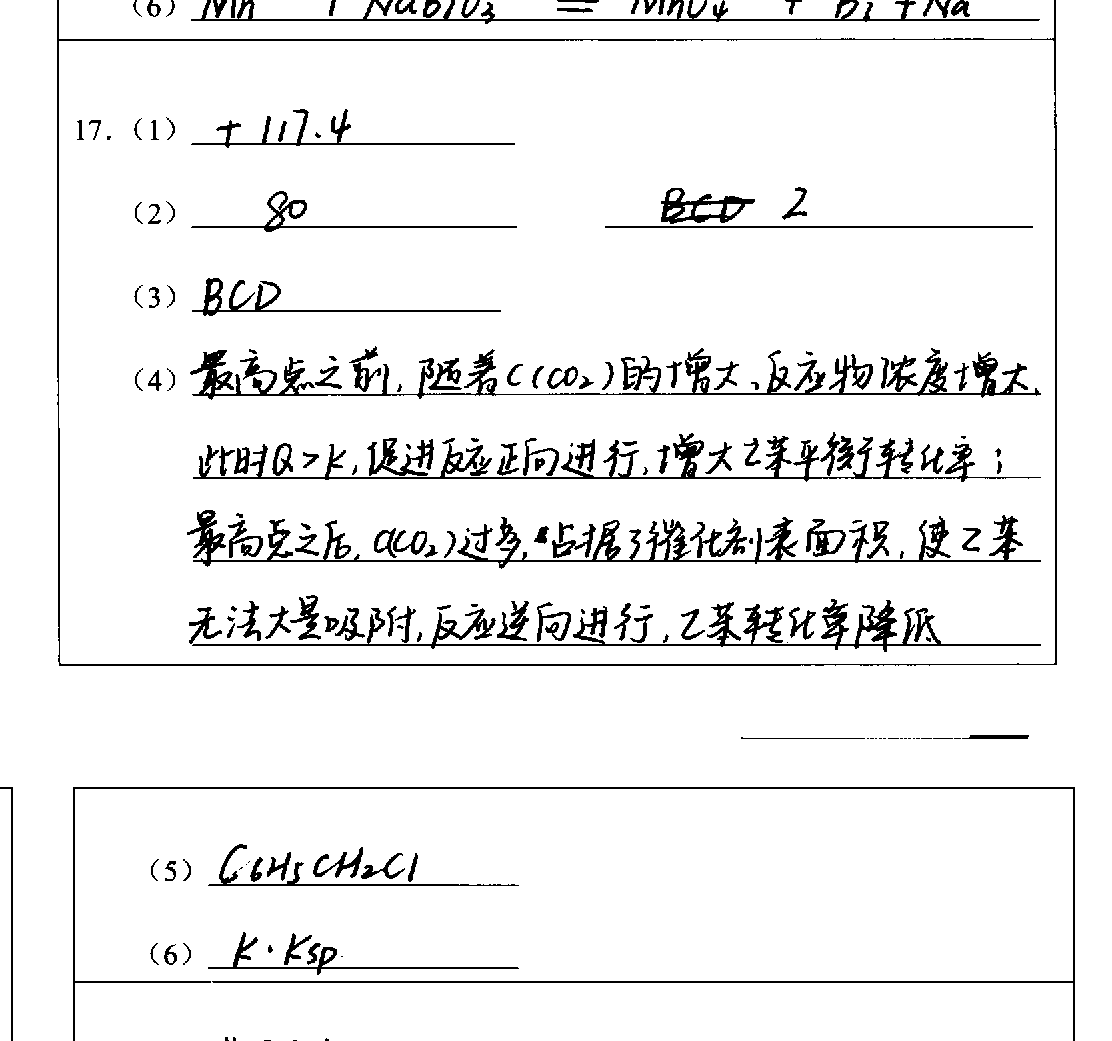 (6) Mn + NaBiO3 = MnO4 + Bi + Na
17. (1) +117.4
(2) 80 BCD 2
(3) BCD
(4) 最高点之前, 随着C(CO2)的增大、反应物浓度增大,
此时Q>K,促进反应正向进行,增大乙苯平衡转化率;
最高点之后, C(CO2)过多, 占据了催化剂表面积, 使乙苯
无法大量吸附, 反应逆向进行, 乙苯转化率降低
(5) C6H5CH2Cl
(6) K·Ksp